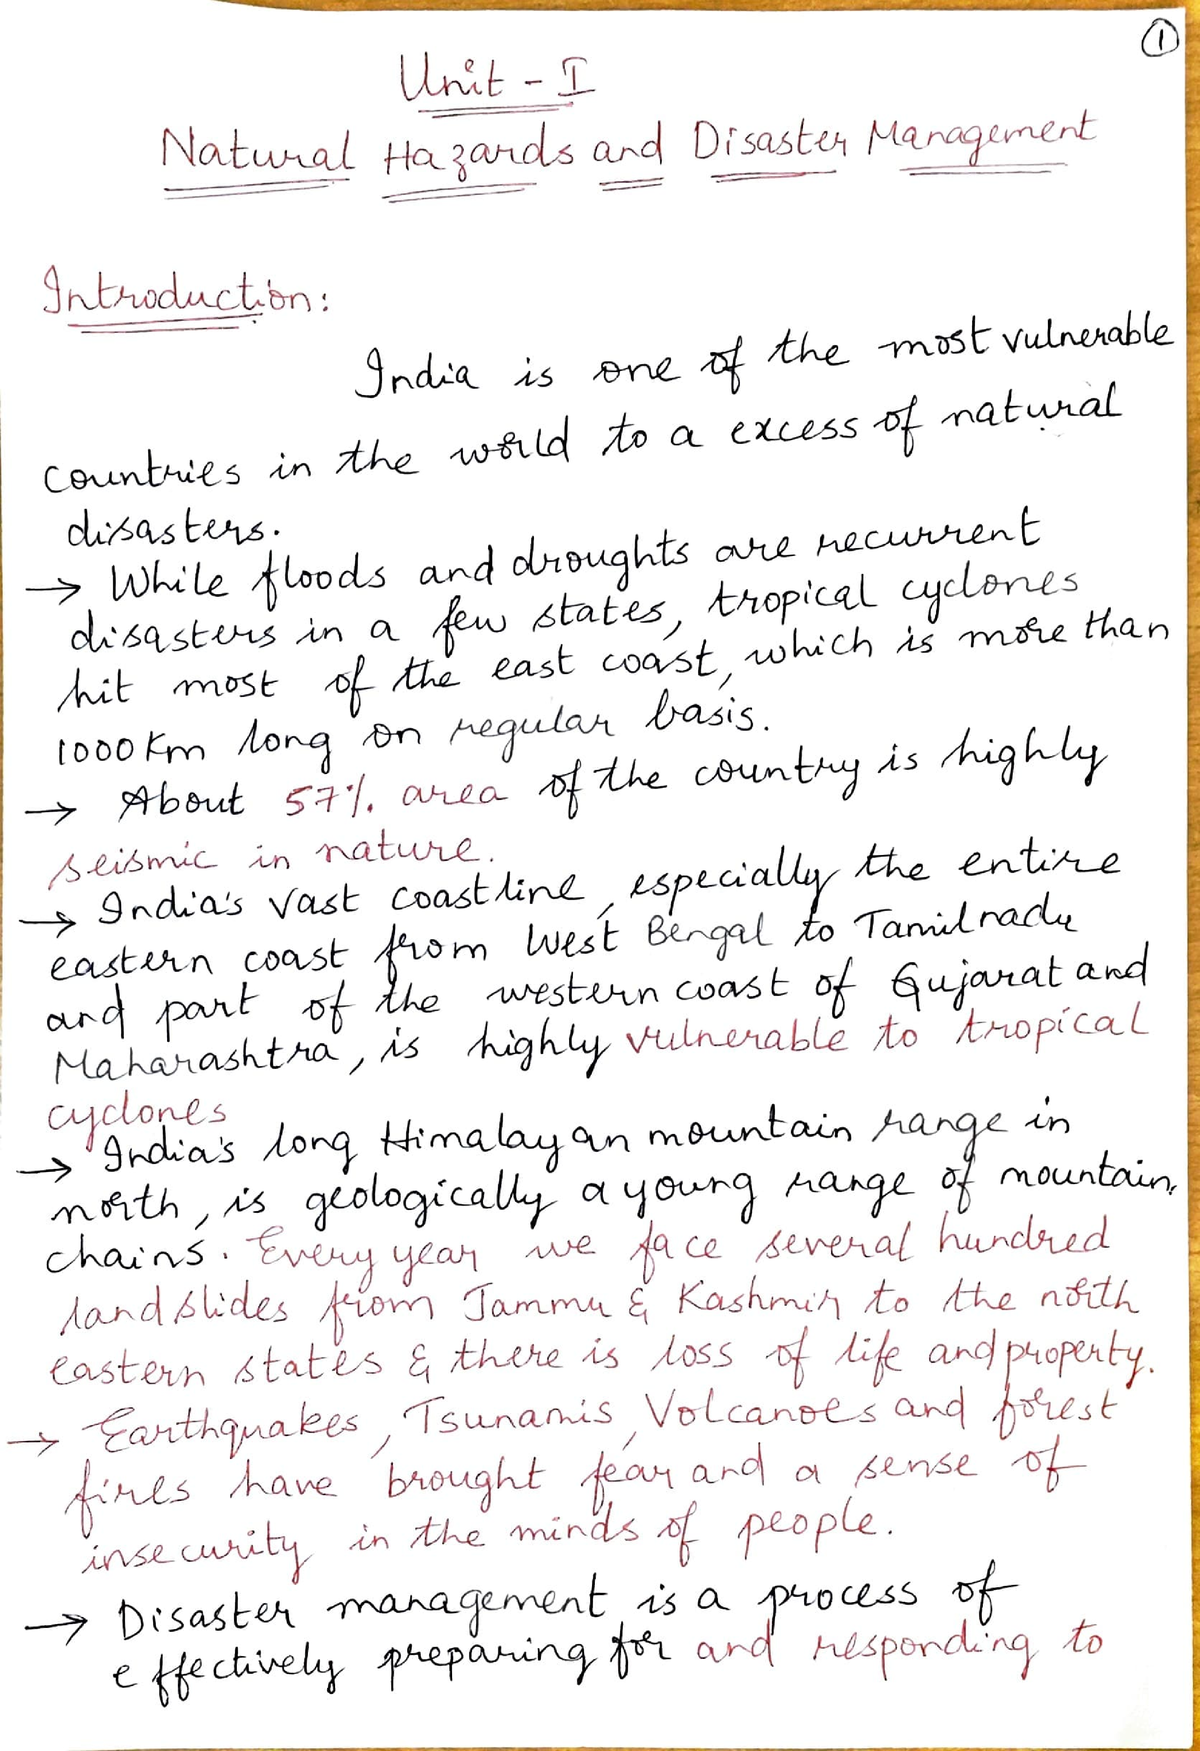 1
Unit - I
Natural Hazards and Disaster Management
Introduction:
India is one of the most vulnerable
countries in the world to a excess of natural
disasters.
→ While floods and droughts are recurrent
disasters in a few states, tropical cyclones
hit most of the east coast, which is more than
1000 Km long on regular basis.
→ About 57% area of the country is highly
seismic in nature.
→ India's vast coastline, especially the entire
eastern coast from West Bengal to Tamilnadu
and part of the western coast of Gujarat and
Maharashtra, is highly vulnerable to tropical
cyclones
→ India's long Himalayan mountain range in
north, is geologically a young range of mountain,
chains. Every year we face several hundred
landslides from Jammu & Kashmir to the north
eastern states & there is loss of life and property.
→ Earthquakes, Tsunamis, Volcanoes and forest
fires have brought fear and a sense of
insecurity in the minds of people.
→ Disaster management is a process of
effectively preparing for and responding to